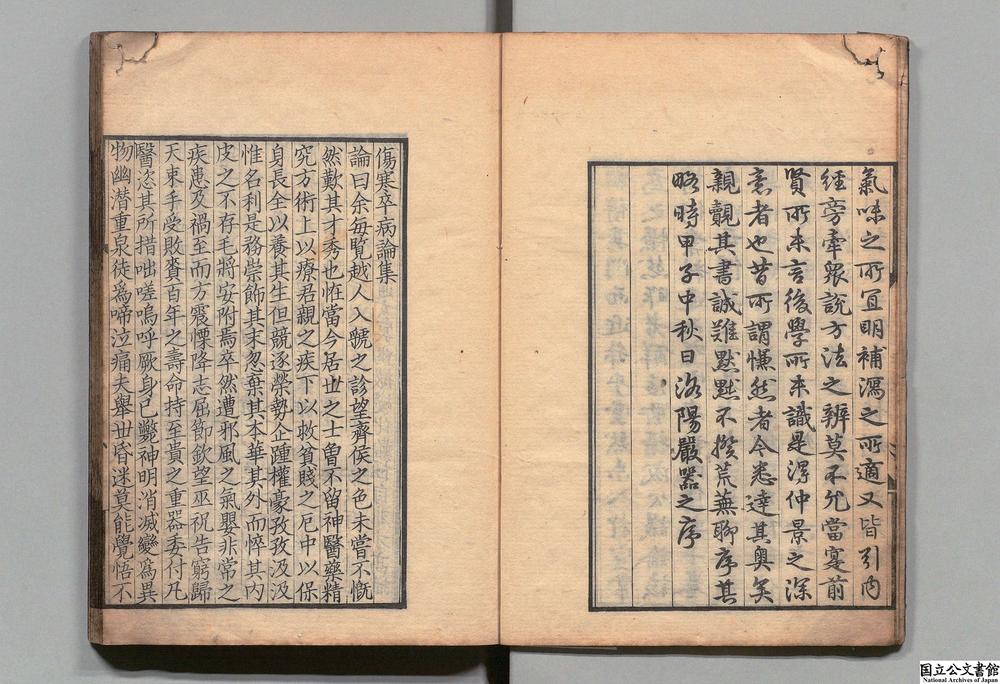 氣味之所宜明補瀉之所適又皆引內
經旁牽衆說方法之辨莫不允當寔前
賢所未言後學所未識是深仲景之深
意者也昔所謂慊然者今悉達其奧矣
親覿其書誠難默默不揆荒蕪聊序其
略時甲子中秋日洛陽嚴器之序
傷寒卒病論集
論曰余每覽越人入虢之診望齊侯之色未嘗不慨
然歎其才秀也怪當今居世之士曾不留神醫藥精
究方術上以療君親之疾下以救貧賤之厄中以保
身長全以養其生但競逐榮勢企踵權豪孜孜汲汲
惟名利是務崇飾其末忽棄其本華其外而悴其內
皮之不存毛將安附焉卒然遭邪風之氣嬰非常之
疾患及禍至而方震慄降志屈節欽望巫祝告窮歸
天束手受敗賫百年之壽命持至貴之重器委付凡
醫恣其所措咄嗟嗚呼厥身已斃神明消滅變爲異
物幽潛重泉徒爲啼泣痛夫舉世昏迷莫能覺悟不
国立公文書館
National Archives of Japan